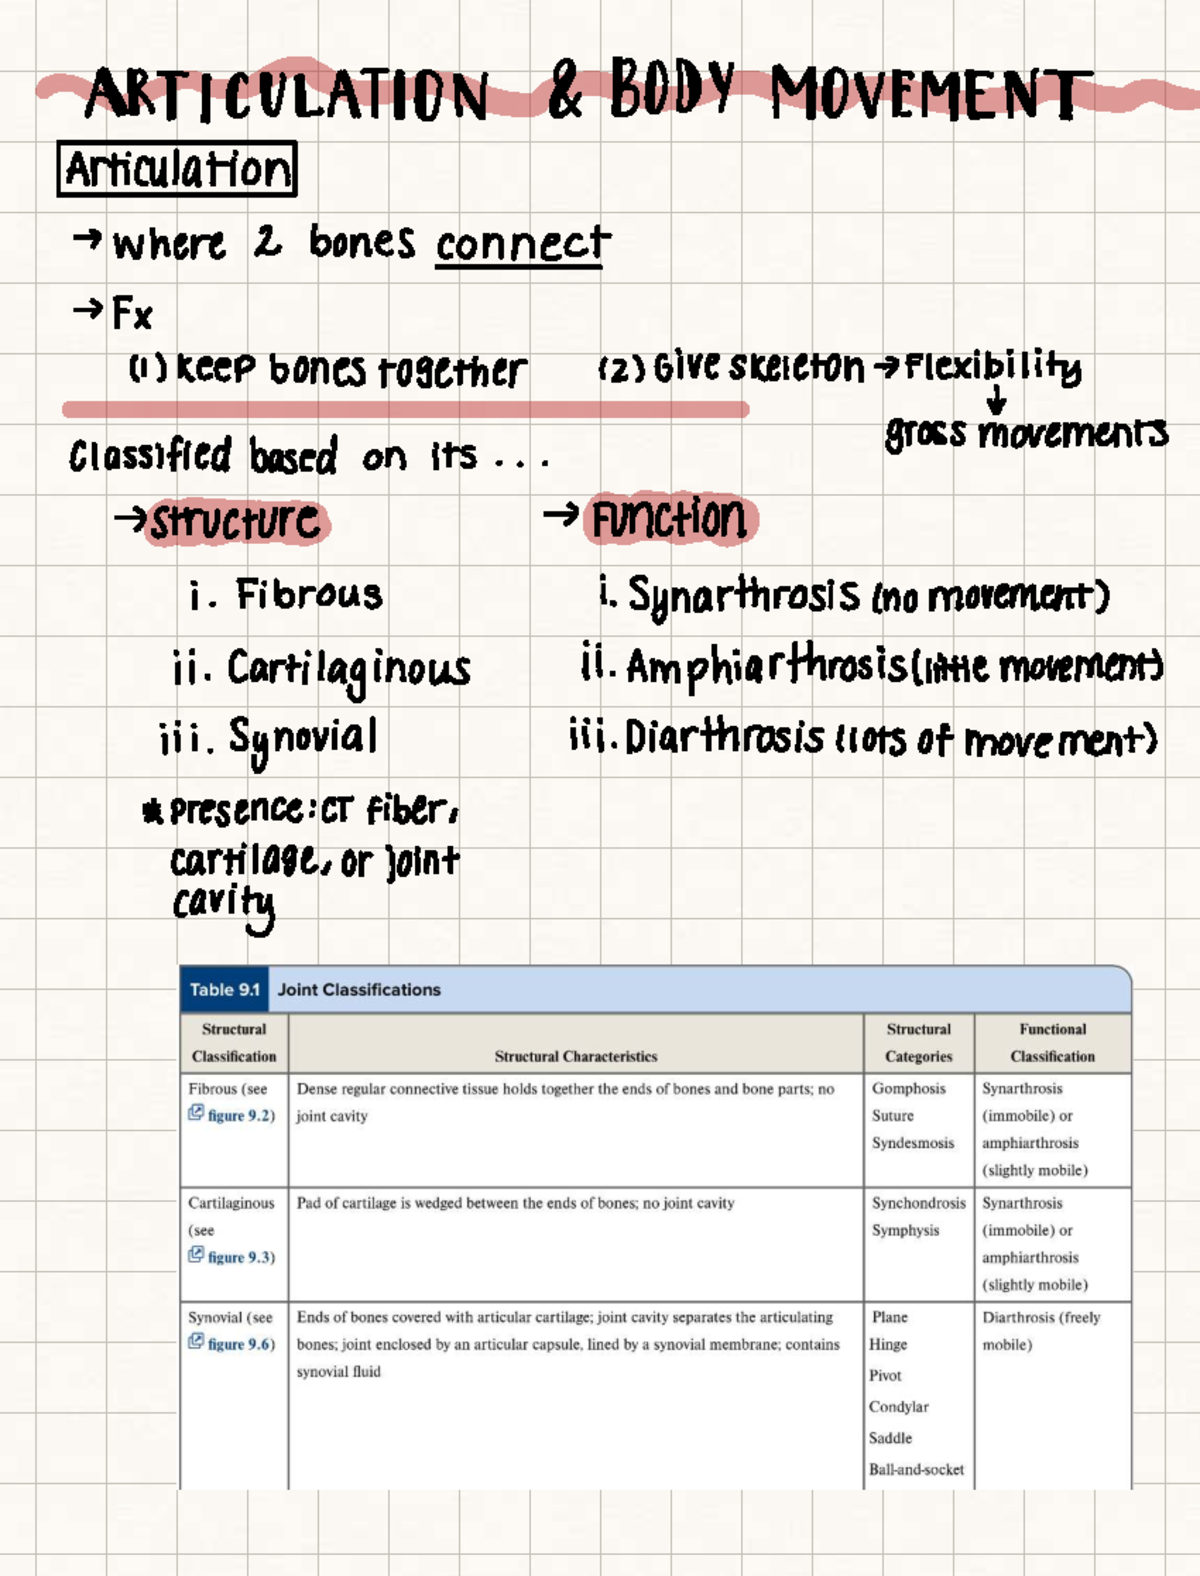 ARTICULATION & BODY MOVEMENT
Articulation
→ where 2 bones connect
→ Fx
(1) Keep bones together (2) Give skeleton → Flexibility
↓
gross movements
Classified based on its ...
→ Structure → Function
i. Fibrous i. Synarthrosis (no movement)
ii. Cartilaginous ii. Amphiarthrosis (little movement)
iii. Synovial iii. Diarthrosis (lots of movement)
* presence: CT fiber,
cartilage, or joint
cavity
Table 9.1 Joint Classifications
Structural Classification Structural Characteristics Structural Categories Functional Classification
Fibrous (see Dense regular connective tissue holds together the ends of bones and bone parts; no Gomphosis Synarthrosis
figure 9.2) joint cavity Suture (immobile) or
Syndesmosis amphiarthrosis
(slightly mobile)
Cartilaginous Pad of cartilage is wedged between the ends of bones; no joint cavity Synchondrosis Synarthrosis
(see Symphysis (immobile) or
figure 9.3) amphiarthrosis
(slightly mobile)
Synovial (see Ends of bones covered with articular cartilage; joint cavity separates the articulating Plane Diarthrosis (freely
figure 9.6) bones; joint enclosed by an articular capsule, lined by a synovial membrane; contains Hinge mobile)
synovial fluid Pivot
Condylar
Saddle
Ball-and-socket